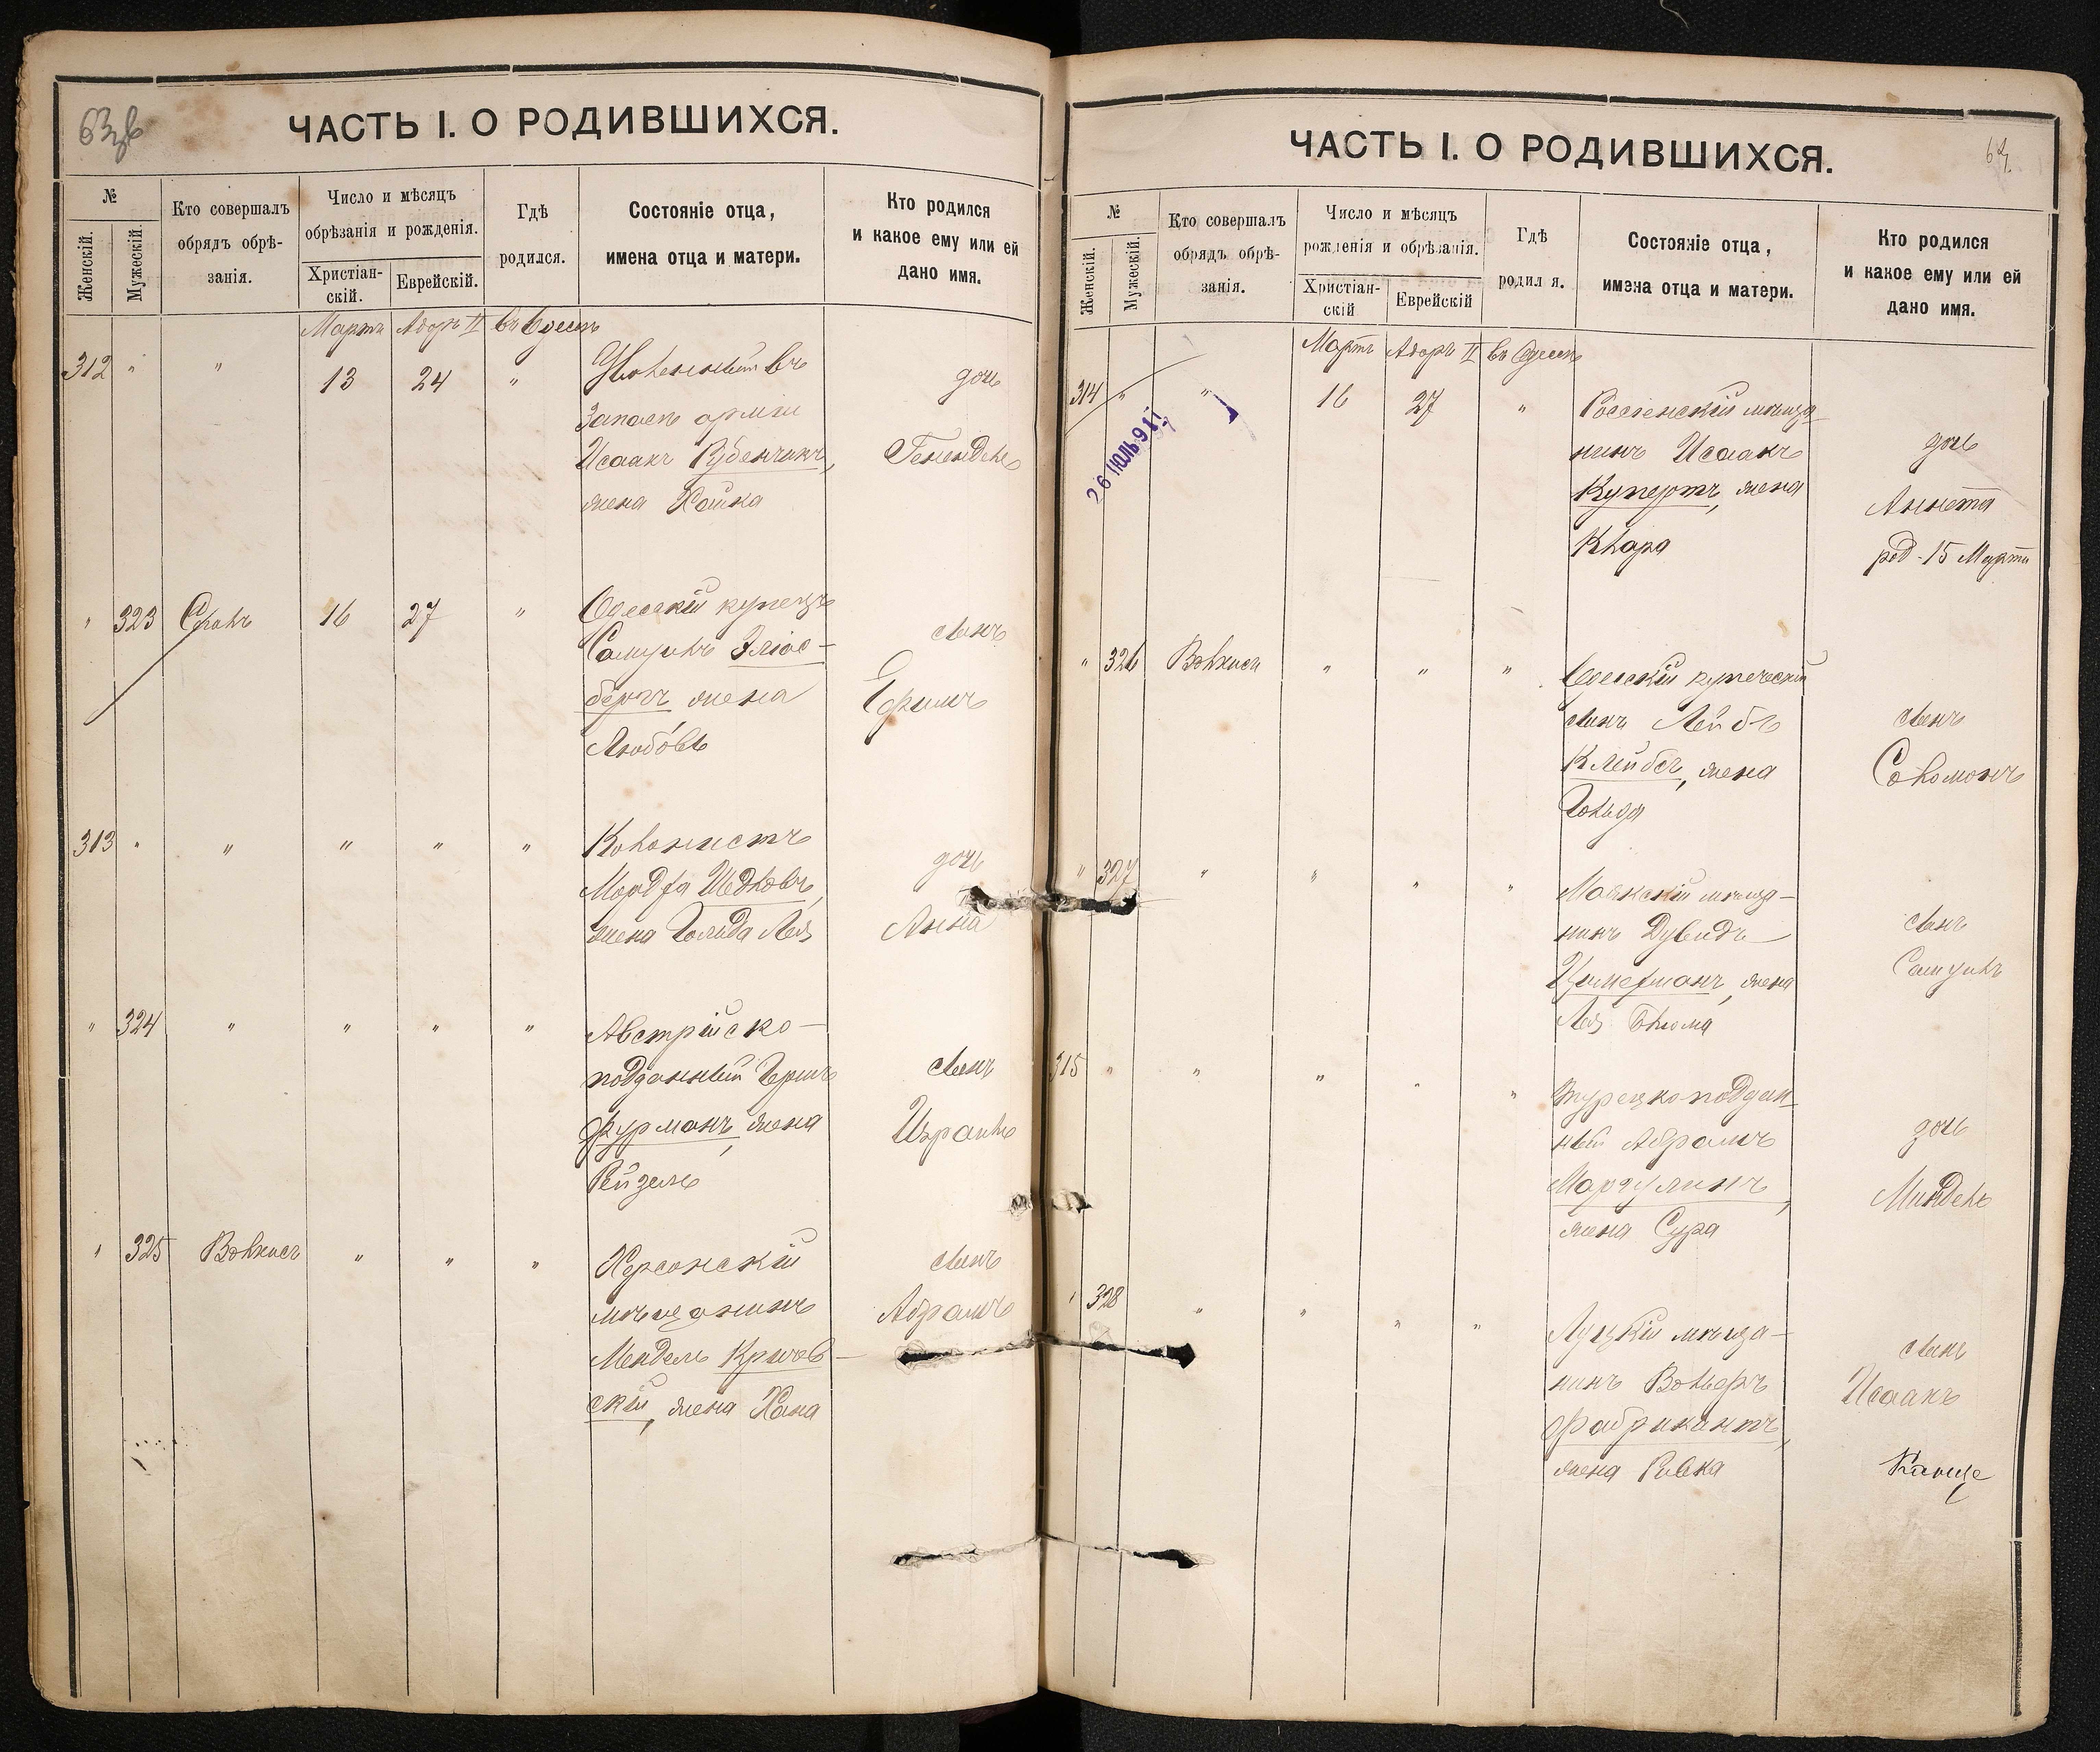 63
ЧАСТЬ I. О РОДИВШИХСЯ.
№
Женскій.
Мужескій.
Кто совершалъ
обрядъ обрѣ-
занія.
Число и мѣсяцъ
обрѣзанія и рожденія.
Христіан-
скій.
Еврейскій.
Гдѣ
родился.
Состояніе отца,
имена отца и матери.
Кто родился
и какое ему или ей
дано имя.
Мартъ Адаръ II въ Одессѣ
312 " " 13 24 " Уволенный въ
запасъ арміи
Исаакъ Рубенчикъ,
жена Хайка
дочь
Генендель
" 323 16 27 " Одесскій купецъ
Самуилъ Эліас-
бергъ жена
Любовь
сынъ
Ефимъ
313 " " " " " Колонистъ
Мордха
жена Гольда Лея
дочь
Анна
" 324 " " " " Австрійско-
подданный Гершъ
Фурманъ, жена
Рейзель
сынъ
Израиль
" 325 Вольхисъ " " " Херсонскій
мѣщанинъ
Мендель Кричев-
скій, жена Хана
сынъ
Абрамъ
ЧАСТЬ I. О РОДИВШИХСЯ.
64
№
Женскій.
Мужескій.
Кто совершалъ
обрядъ обрѣ-
занія.
Число и мѣсяцъ
рожденія и обрѣзанія.
Христіан-
скій
Еврейскій
Гдѣ
родил я.
Состояніе отца,
имена отца и матери.
Кто родился
и какое ему или ей
дано имя.
Мартъ Адаръ II въ Одессѣ
314 " " 16 27 " Россіенскій мѣща-
нинъ Исаакъ
Купертъ, жена
Клара
дочь
Аннета
род. 15 Марта
26 ІЮЛЬ 91
" 326 Вольхисъ " " " Одесскій купеческій
сынъ Лейбъ
Клейбсъ, жена
Гольда
сынъ
Соломонъ
" 327 " " " " Маякскій мѣща-
нинъ Дувидъ
Цимерманъ, жена
Лея Блюма
сынъ
Самуилъ
315 " " " " " Турецкоподдан-
ный Абрамъ
Маргулисъ,
жена Сура
дочь
Миндель
" 328 " " " " Луцкій мѣща-
нинъ Вольфъ
Фабрикантъ,
жена Ривка
сынъ
Исаакъ